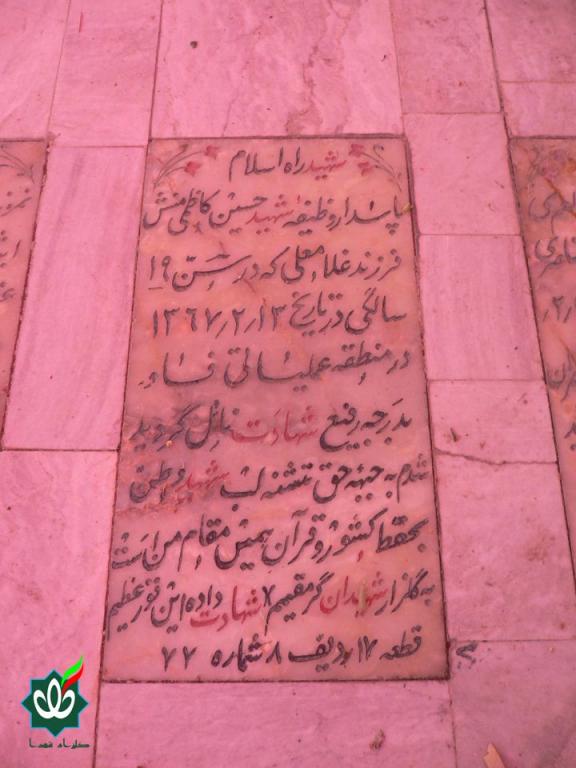 شهید راه اسلام
پاسدار وظیفه شهید حسین کاظمی منش
فرزند غلامعلی که در سن ۱۹
سالگی در تاریخ ۱۳٫۲٫۱۳۶۷
در منطقه عملیاتی فاو
بدرجه رفیع شهادت نائل گردید
شدم به جبهه حق تشنه لب شهید وطن
بحفظ کشور و قرآن همین مقام من است
به گلزار شهیدان گر مقیمم شهادت داده این فوز عظیم
قطعه ۱۲ ردیف ۸ شماره ۲۲
گلزار شهدا